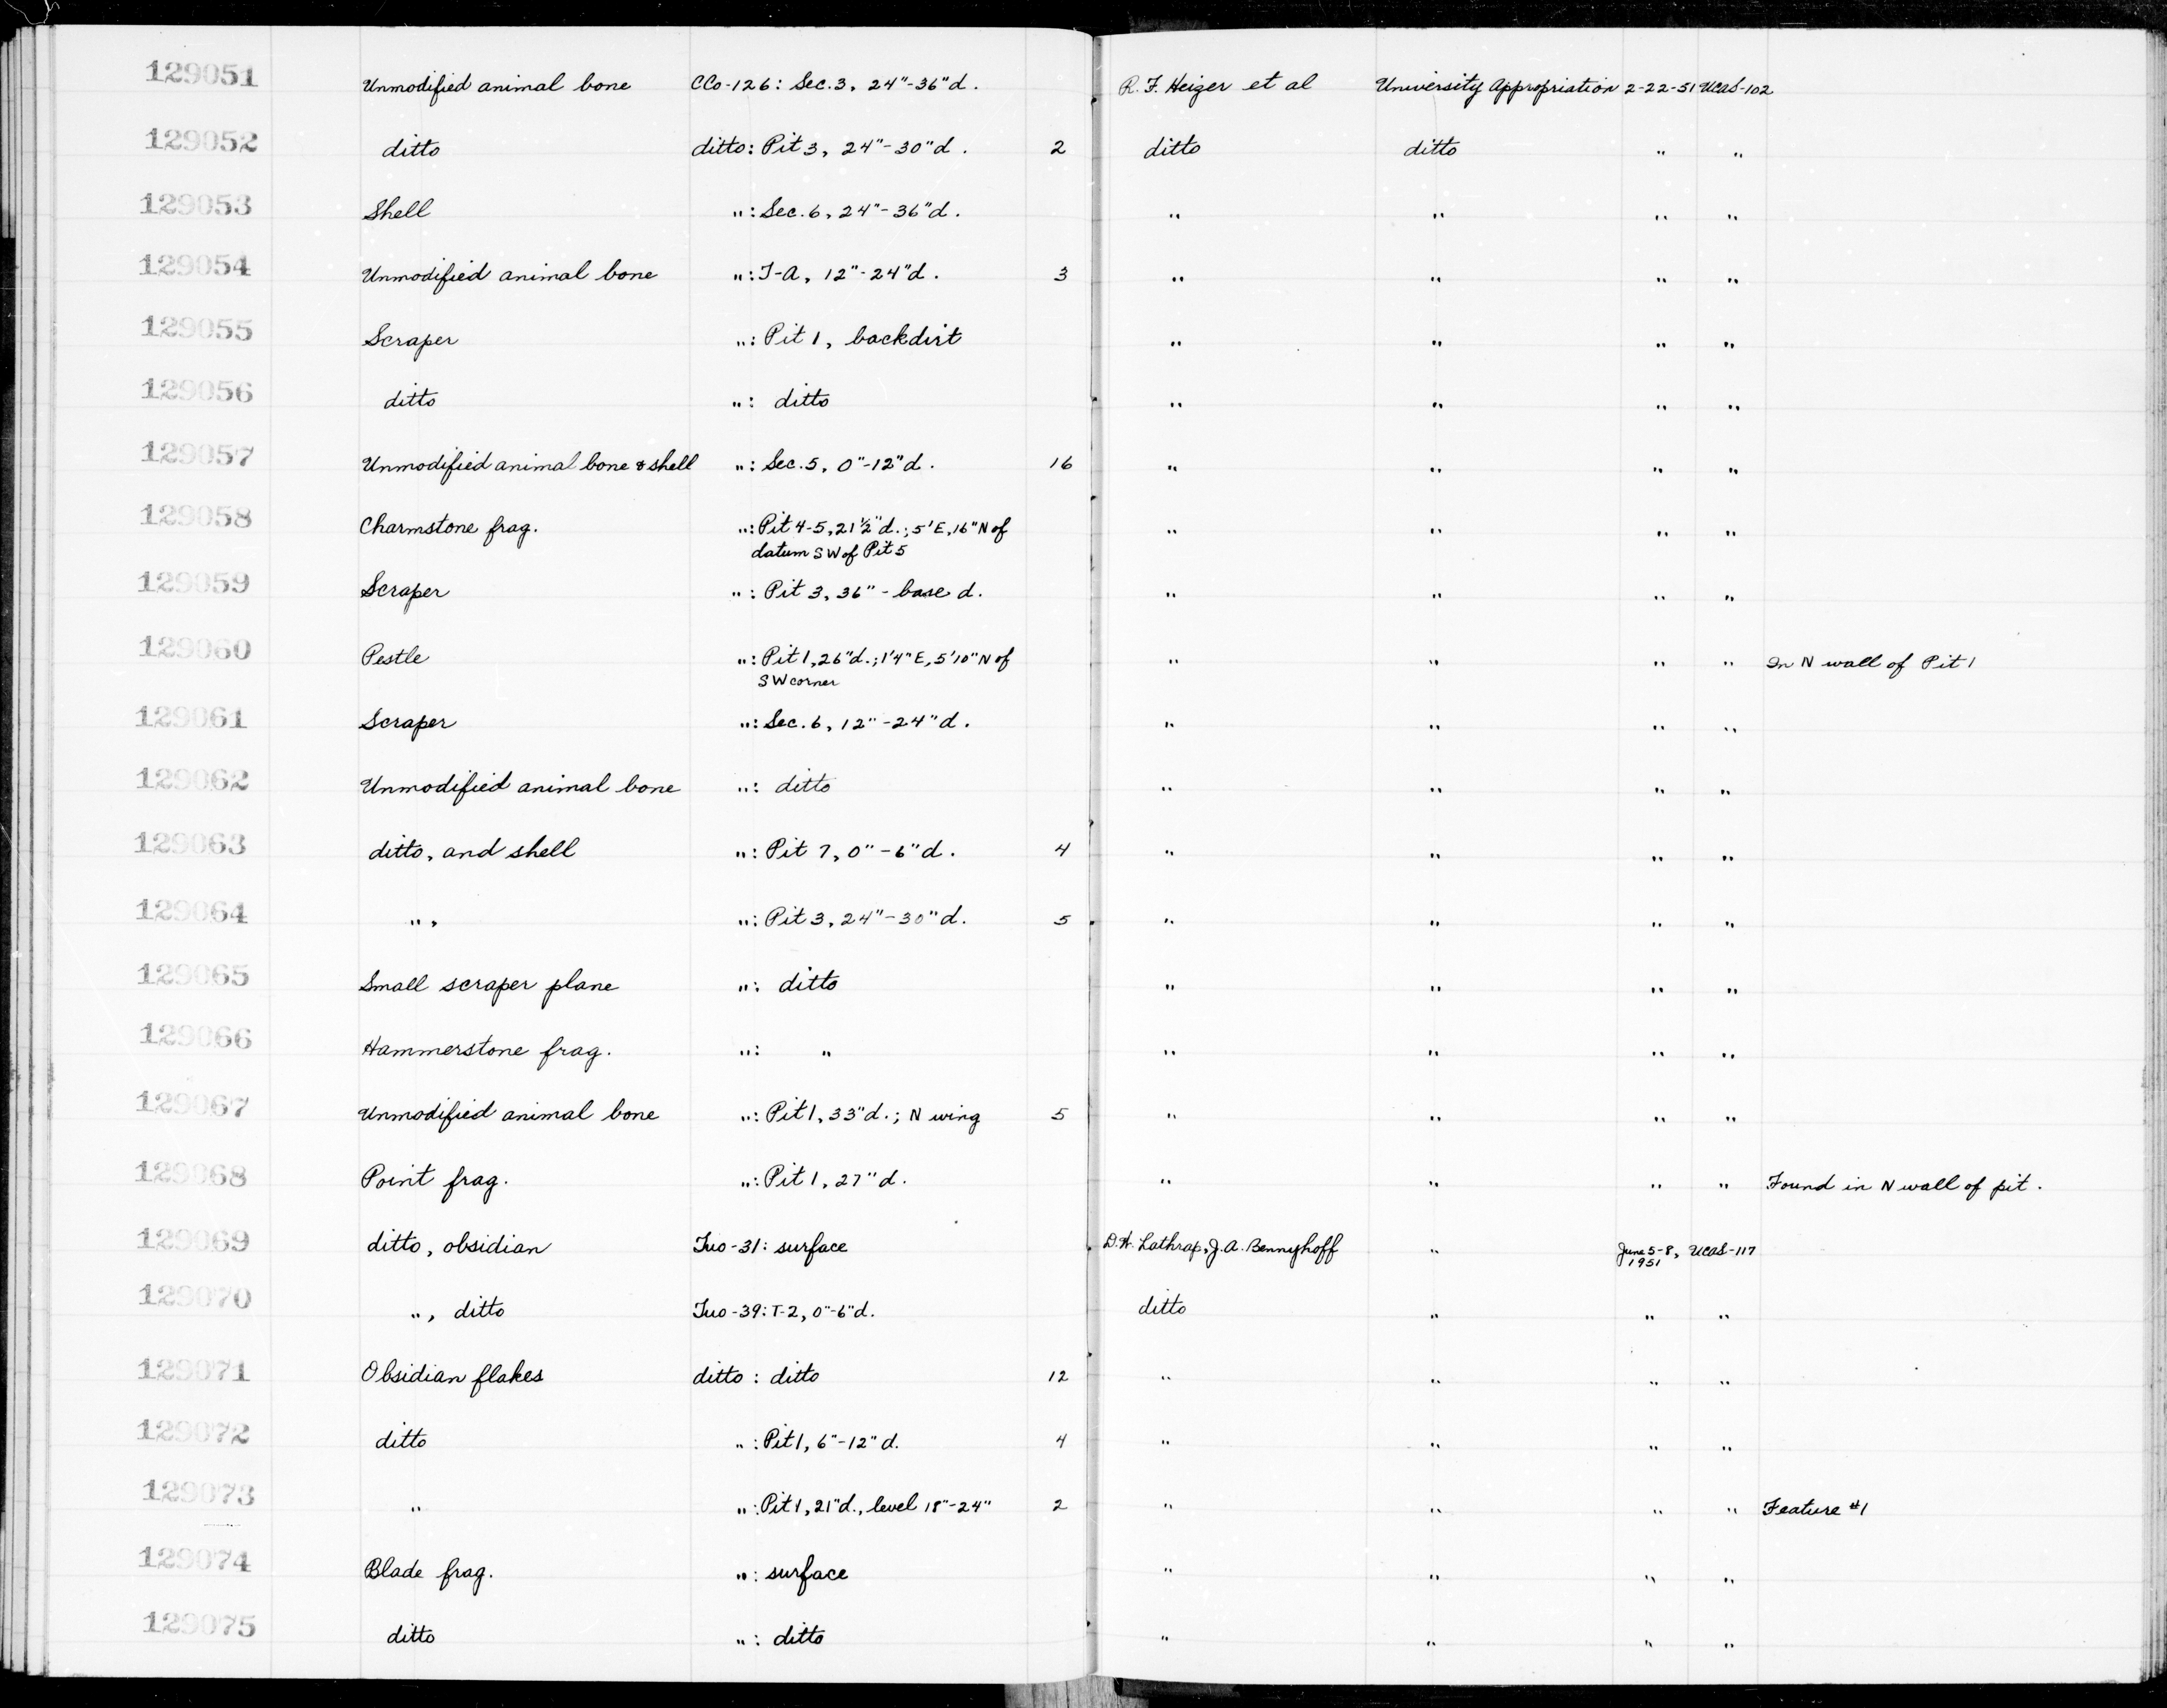 129051 Unmodified animal bone CCo-126: Sec. 3, 24"-36"d. R. F. Heizer et al University Appropriation 2-22-51 UCAS-102
129052 ditto ditto: Pit 3, 24"-30"d. 2 ditto ditto " "
129053 Shell ": Sec. 6, 24"-36"d. " " " "
129054 Unmodified animal bone ": T-A, 12"-24"d. 3 " " " "
129055 Scraper ": Pit 1, backdirt " " " "
129056 ditto ": ditto " " " "
129057 Unmodified animal bone & shell ": Sec. 5, 0"-12"d. 16 " " " "
129058 Charmstone frag. ": Pit 4-5, 21½"d.; 5'E, 16"N of " " " "
datum SW of Pit 5
129059 Scraper ": Pit 3, 36" - base d. " " " "
129060 Pestle ": Pit 1, 26"d.; 1'4"E, 5'10"N of " " " " In N wall of Pit 1
SW corner
129061 Scraper ": Sec. 6, 12"-24"d. " " " "
129062 Unmodified animal bone ": ditto " " " "
129063 ditto, and shell ": Pit 7, 0"-6"d. 4 " " " "
129064 ", ": Pit 3, 24"-30"d. 5 " " " "
129065 Small scraper plane ": ditto " " " "
129066 Hammerstone frag. ": " " " " "
129067 Unmodified animal bone ": Pit 1, 33"d.; N wing 5 " " " "
129068 Point frag. ": Pit 1, 27"d. " " " " Found in N wall of pit.
129069 ditto, obsidian Tuo-31: surface D.W. Lathrap, J.A. Bennyhoff " June 5-8, UCAS-117
1951
129070 ", ditto Tuo-39: T-2, 0"-6"d. ditto " " "
129071 Obsidian flakes ditto: ditto 12 " " " "
129072 ditto ": Pit 1, 6"-12"d. 4 " " " "
129073 " ": Pit 1, 21"d., level 18"-24" 2 " " " " Feature #1
129074 Blade frag. ": surface " " " "
129075 ditto ": ditto " " " "